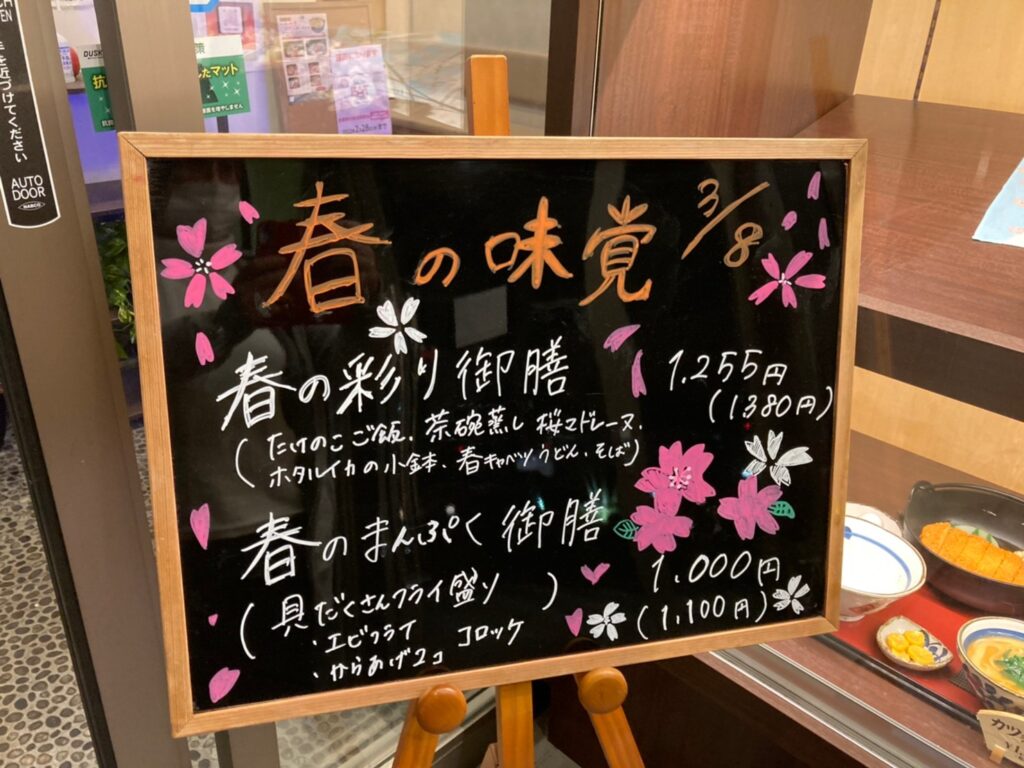 手を近づけてください
AUTO
DOOR
NABCO
DUSK
抗
策
したマット
菌を増やしません
2月28日まで
春の味覚 3/8
春の彩り御膳 1.255円
(1380円)
(たけのこご飯、茶碗蒸し 桜マドレーヌ、
ホタルイカの小鉢、春キャベツうどん・そば)
春のまんぷく御膳 1.000円
(1,100円)
(具だくさんフライ盛り)
・エビフライ コロッケ
・からあげ2コ
カツ